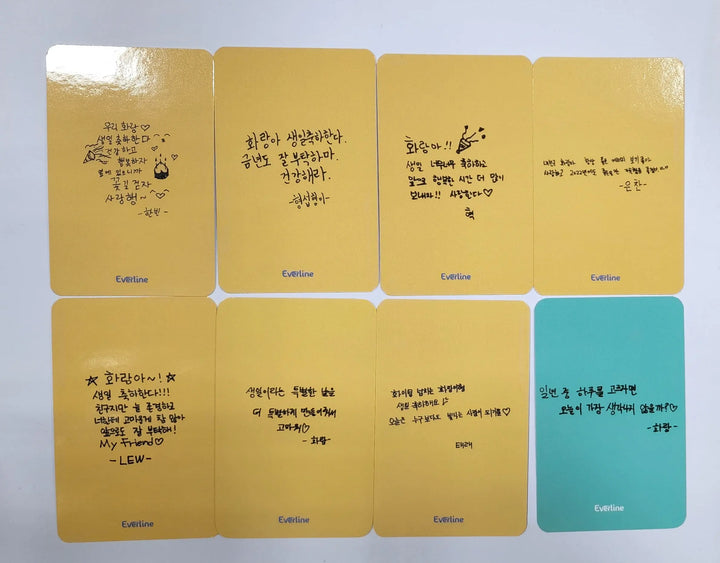 우리 화랑♡
생일 축하한다
건강하고
행복하자
꽃길 걷자
사랑행~♡
-한빈-
Everline
화랑아 생일축하한다.
금년도 잘 부탁하마.
건강해라.
-형섭형이-
Everline
화랑아!!
생일 너무너무 축하하고
앞으로 행복한 시간 더 많이
보내자!! 사랑한다♡
혁
Everline
-은찬-
Everline
☆ 화랑아~! ☆
생일 축하한다!!!
친구지만 늘 존경하고
너한테 고마운게 참 많아
앞으로도 잘 부탁해!
My Friend♡
-LEW-
Everline
생일이라는 특별한 날을
더 특별하게 만들어줘서
고마워♡
-화랑-
Everline
생일 축하해요
오늘은 누구보다도 빛나는 사람이 되기를♡
태래
Everline
일년 중 하루를 고르라면
오늘이 가장 생각나지 않을까?♡
-화랑-
Everline